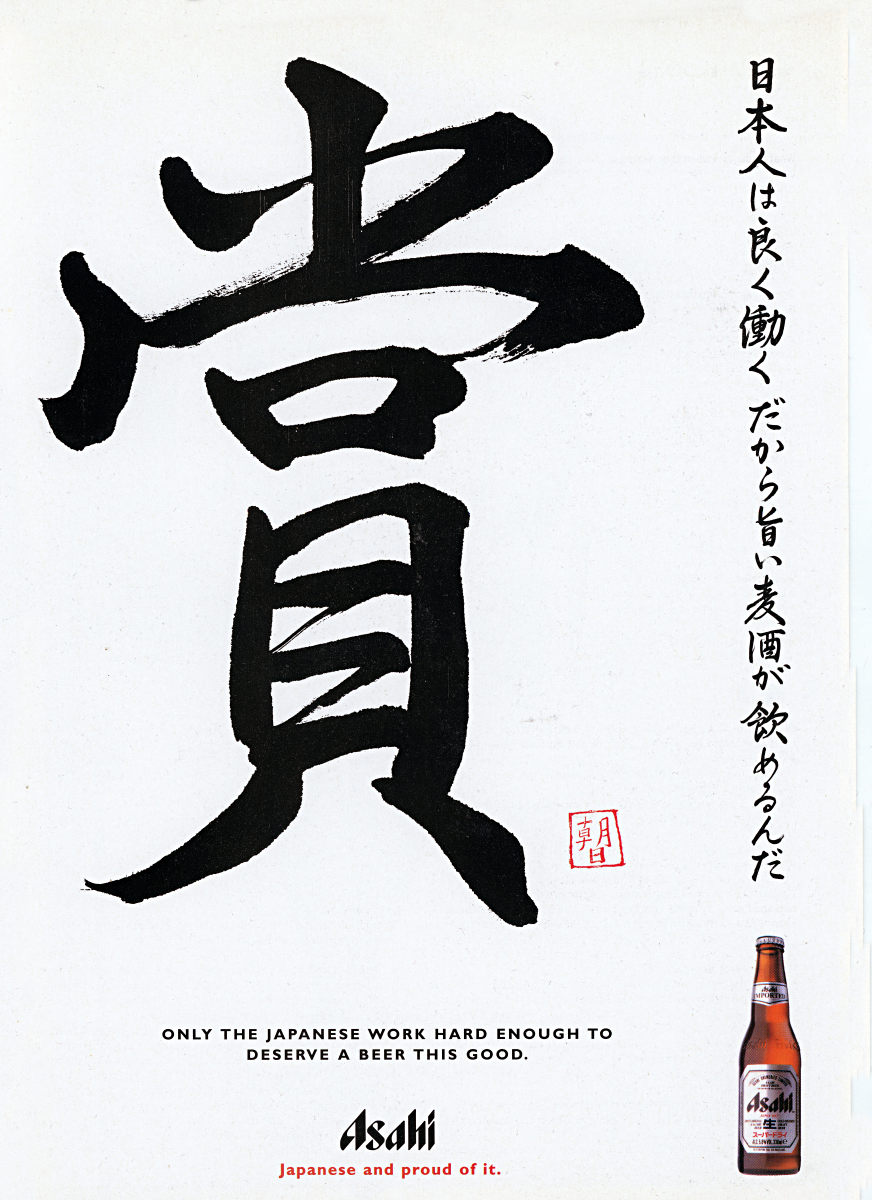 賞
日本人は良く働くだから旨い麦酒が飲めるんだ
朝日
ONLY THE JAPANESE WORK HARD ENOUGH TO
DESERVE A BEER THIS GOOD.
Asahi
Japanese and proud of it.
Asahi
IMPORTED
Asahi
生
スーパードライ